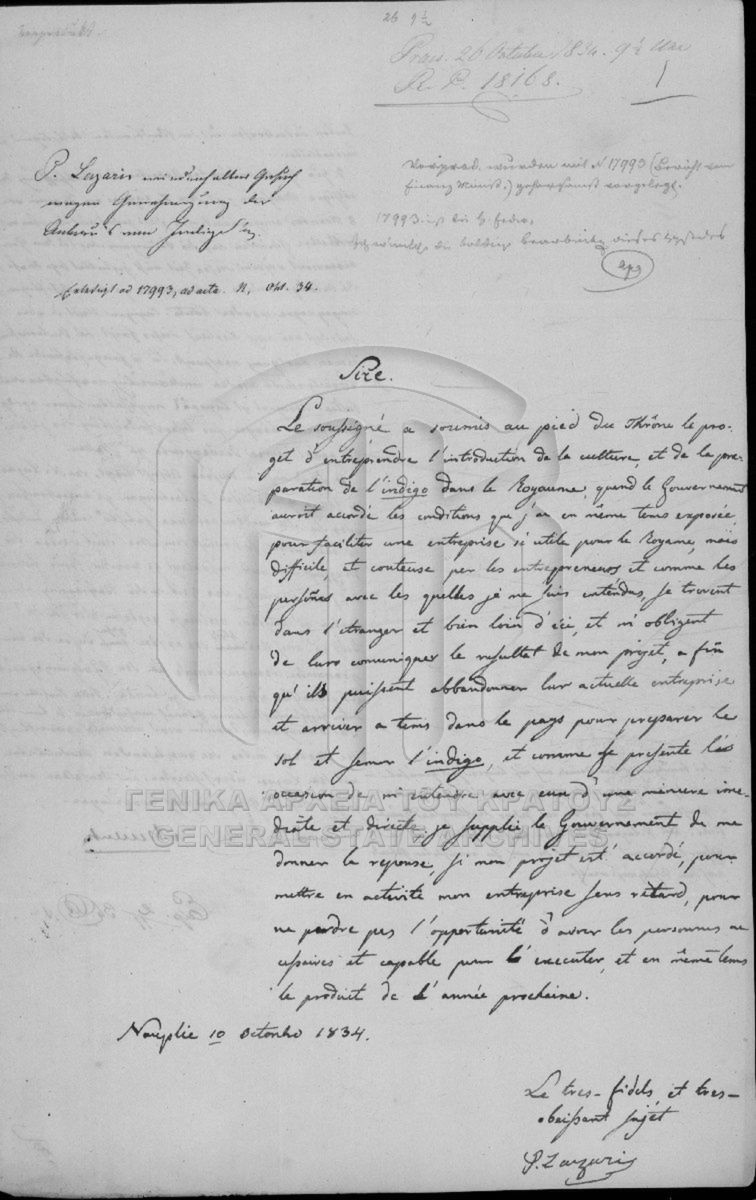 26 9½
Praes. 26 October 1834. 9½ Uhr
R. P. 18168.
P. Lazaris wiederholtes Gesuch
wegen Genehmigung der
Anbau's von Indigo
Vorprod. wurden mit N 17993 (Bericht vom
Finanz Minist.) gehorsamst vorgelegt.
17993 ist bei H.
die baldige Bearbeitg dieses Gesuches
Erledigt ad 17993, ad acta. N, Okt. 34.
Sire.
Le soussigné a soumis au pied du Thrône le pro-
get d'entreprendre l'introduction de la culture, et de la pre-
paration de l'indigo dans le Royaume, quand le Gouvernement
auroit accordé les conditions que j'ai en même tems exposée
pour faciliter une entreprise si utile pour le Royame, mais
difficile, et couteuse per les entrepreneurs et comme les
persones avec les quelles je me suis entendus, se trovent
dans l'etranger et bien loin d'ici, et m'obligent
de luro comuniquer le resultat de mon projet, a fin
qu'ils puissent abbandonner lur actuelle entreprise
et arriver a tems dans le pays pour preparer le
sol et semer l'indigo, et comme se presente l'
occasion de m'entendre avec eux d'une maniere ime-
diate et directe, je supplie le Gouvernement de me
donner la reponse, si mon projet est accordé, pour
mettre en activité mon entreprise sens retard, pour
ne perdre pas l'opportunité d'avoir les personnes ne
cessaires et capable pour l'executer, et en même tems
le produit de l'année prochaine.
ΓΕΝΙΚΑ ΑΡΧΕΙΑ ΤΟΥ ΚΡΑΤΟΥΣ
GENERAL STATE ARCHIVES
Nauplie 10 Octombre 1834.
Le tres-fidels et tres-
obeissant sujet
P. Lazaris